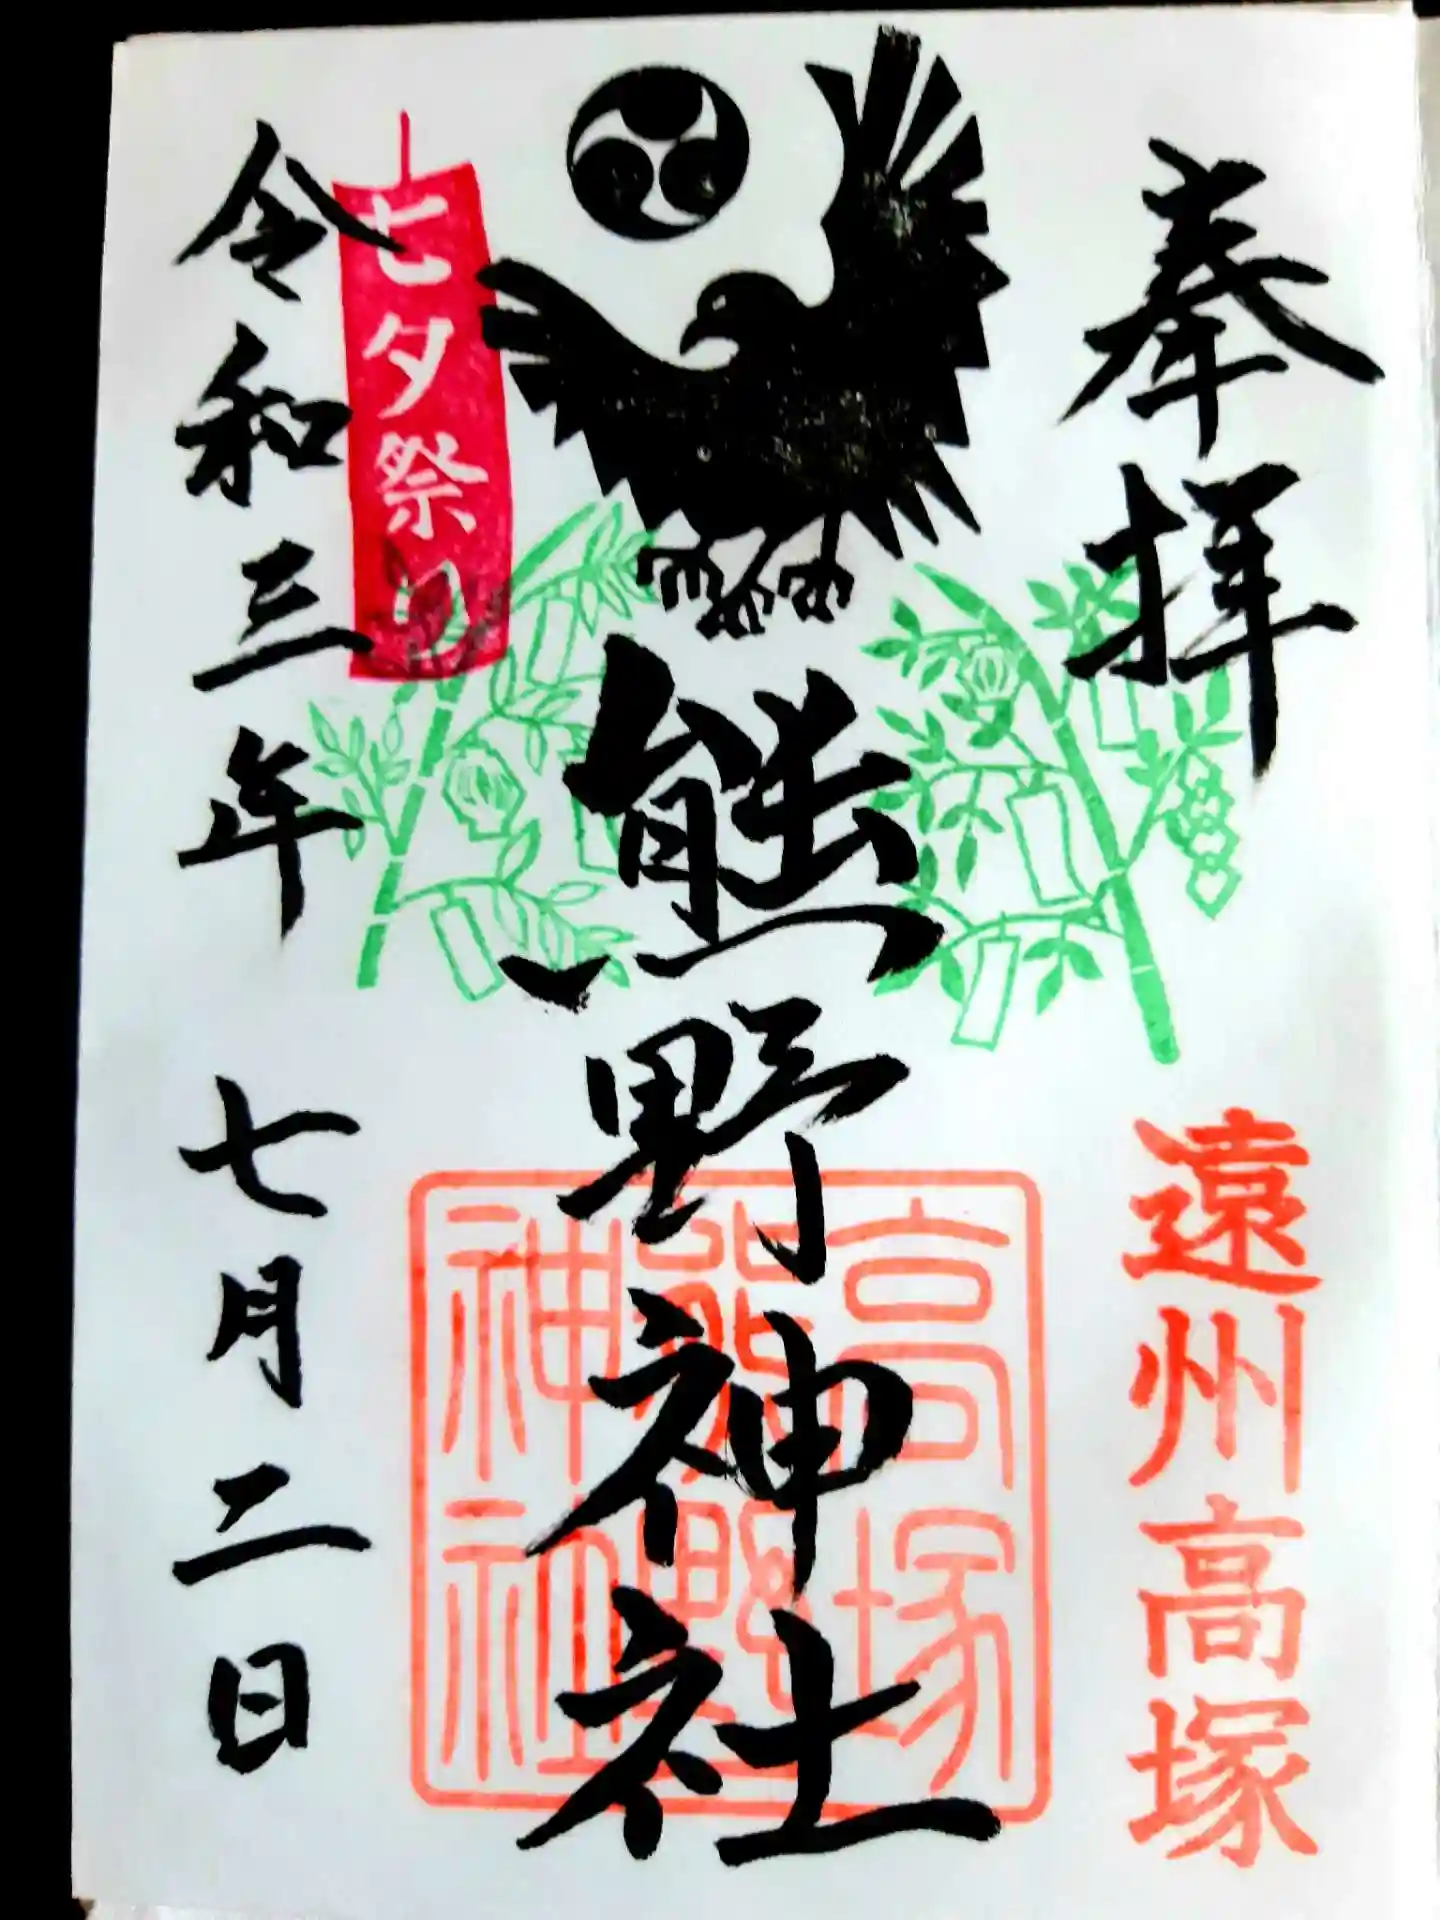 奉拝
遠州高塚
熊野神社
高塚
熊野
神社
七夕祭り
令和三年 七月二日